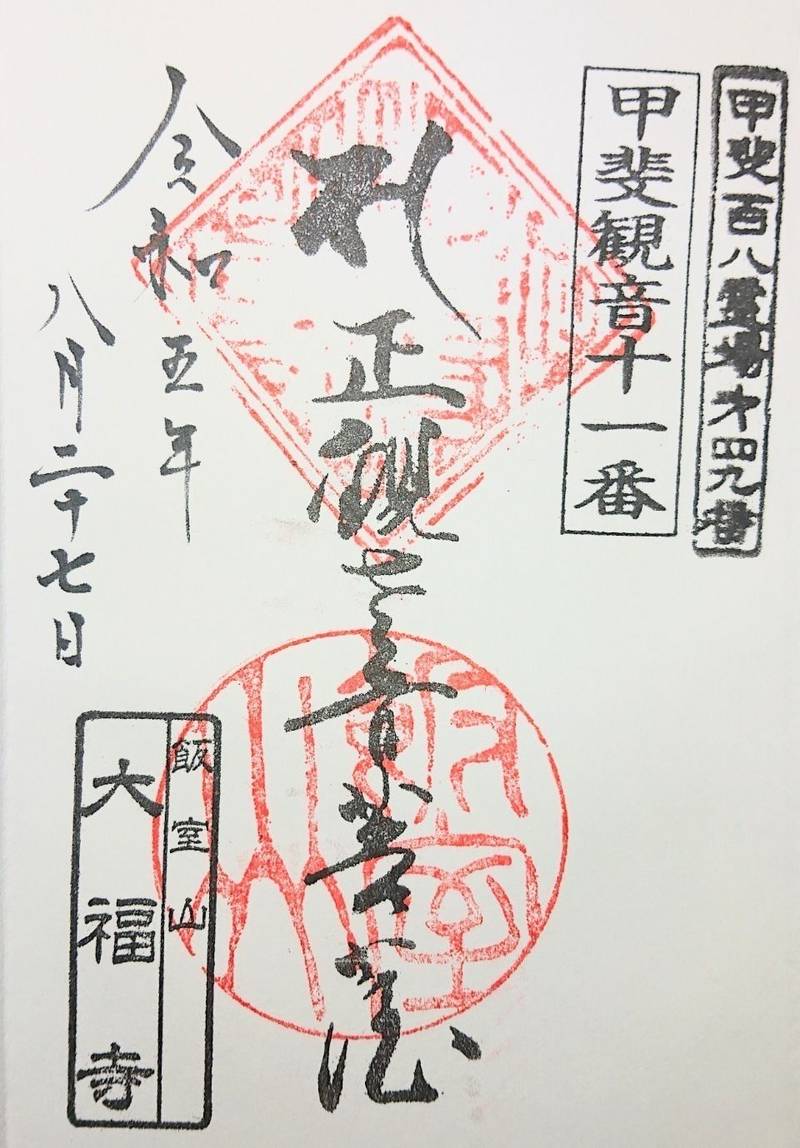 甲斐百八霊場才四九番
甲斐観音十一番
正観世音菩薩
令和五年
八月二十七日
飯室山
大福寺
飯室山